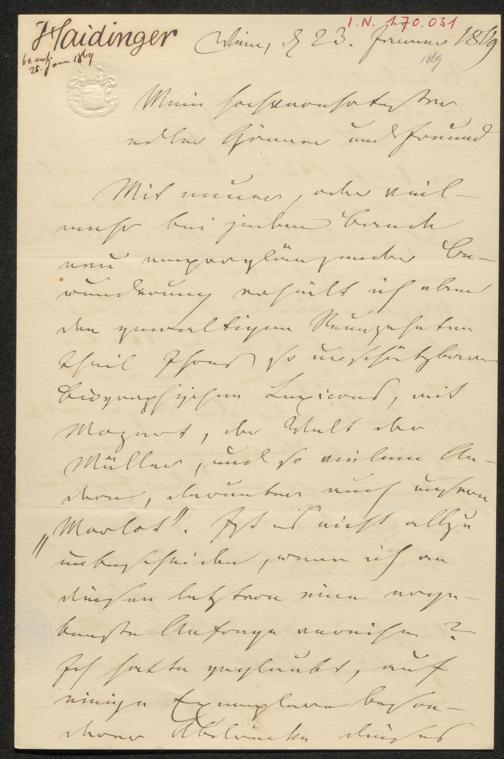 I.N. 170.031
Haidinger
Wien, d 23. Jänner 1869
1869
Mein hochverehrtester
edler Gönner und Freund
Mit neuer, oder viel-
mehr bei jedem Bande
neu emporglänzender Be-
wunderung erhielt ich eben
den gewaltigen Neunzehnten
Theil Ihres so unschätzbaren
biographischen Lexicons, mit
Mozart, der Welt der
Müller, und so vielem An-
dern, darunter auch unsern
„Morlot". Ist es nicht allzu
unbescheiden, wenn ich an
diesen letztern eine erge-
benste Anfrage anreihe?
Ich hatte geglaubt, auf
einige Exemplare beson-
derer Abdrücke dieses